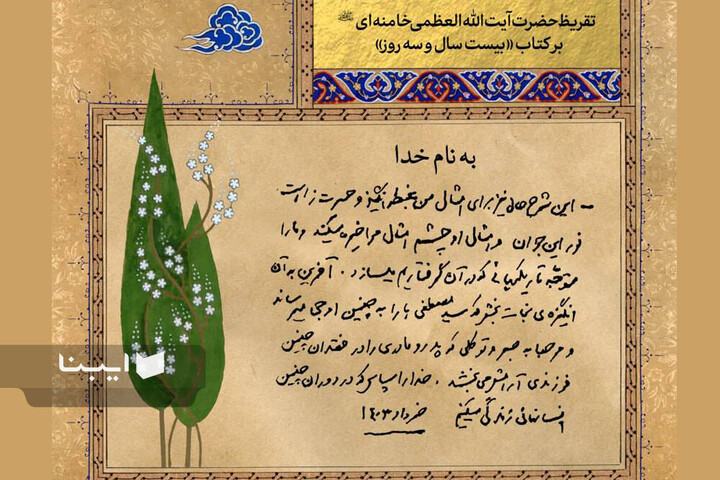 تقریظ حضرت آیت‌الله العظمی خامنه‌ای
بر کتاب «بیست سال و سه روز»
به نام خدا
– این شرح‌ها نیز برای امثال من غبطه‌انگیز و حسرت‌زا است.
نور این جوان و امثال او چشم امثال مرا خیره میکند و ما را
متوجّه تاریکی‌هائی که در آن گرفتاریم میسازد. آفرین به آن
انگیزه‌ی نجات‌بخش که سید مصطفی‌ها را به چنین اوجی میرساند
و مرحبا به صبر و توکلی که پدر و مادری را در فقدان چنین
فرزندی آرامش می‌بخشد. خدا را سپاس که در دوران چنین
انسانهائی زندگی میکنیم خرداد ۱۴۰۳
ایبنا